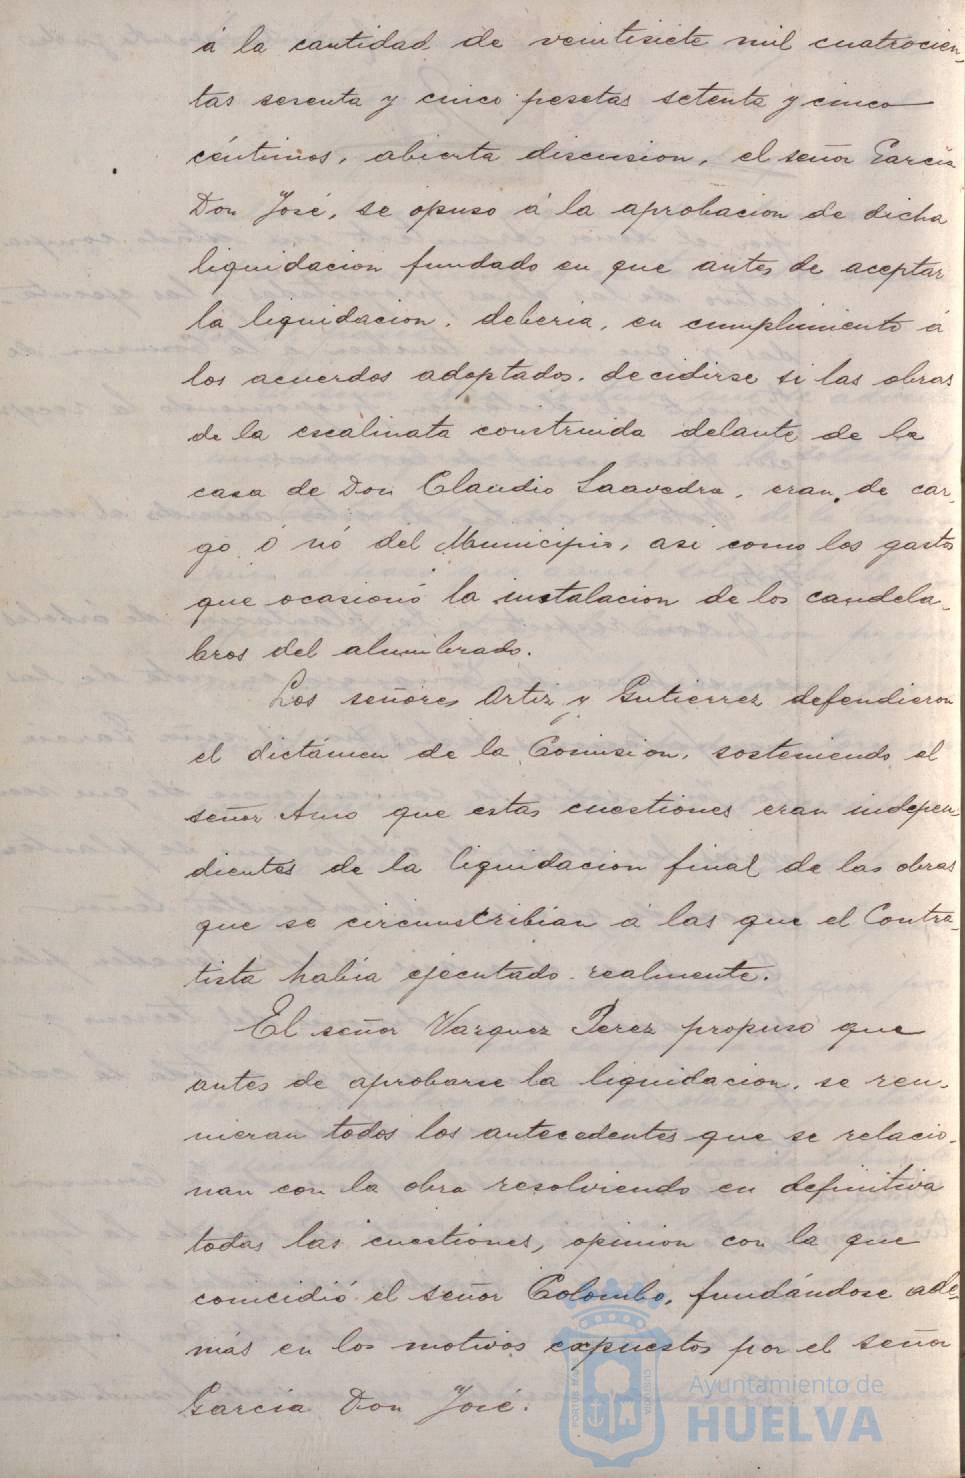 á la cantidad de veintisiete mil cuatrocien-
tas sesenta y cinco pesetas setenta y cinco
céntimos, abierta discusion, el señor García
Don José, se opuso á la aprobacion de dicha
liquidacion fundado en que antes de aceptar
la liquidacion, deberia, en cumplimiento á
los acuerdos adoptados, decidirse si las obras
de la escalinata construida delante de la
casa de Don Claudio Saavedra, eran de car-
go ó nó del Municipio, asi como los gastos
que ocasionó la instalacion de los candela-
bros del alumbrado.
Los señores Ortiz y Gutierrez defendieron
el dictámen de la Comision, sosteniendo el
señor Amo que estas cuestiones eran indepen-
dientes de la liquidacion final de las obras
que se circunscribian á las que el Contra-
tista habia ejecutado realmente.
El señor Vazquez Perez propuso que
antes de aprobarse la liquidacion, se reu-
nieran todos los antecedentes que se relacio-
nan con la obra resolviendo en definitiva
todas las cuestiones, opinion con la que
coincidió el señor Colombo, fundándose ade-
más en los motivos expuestos por el señor
García Don José.
Ayuntamiento de
HUELVA